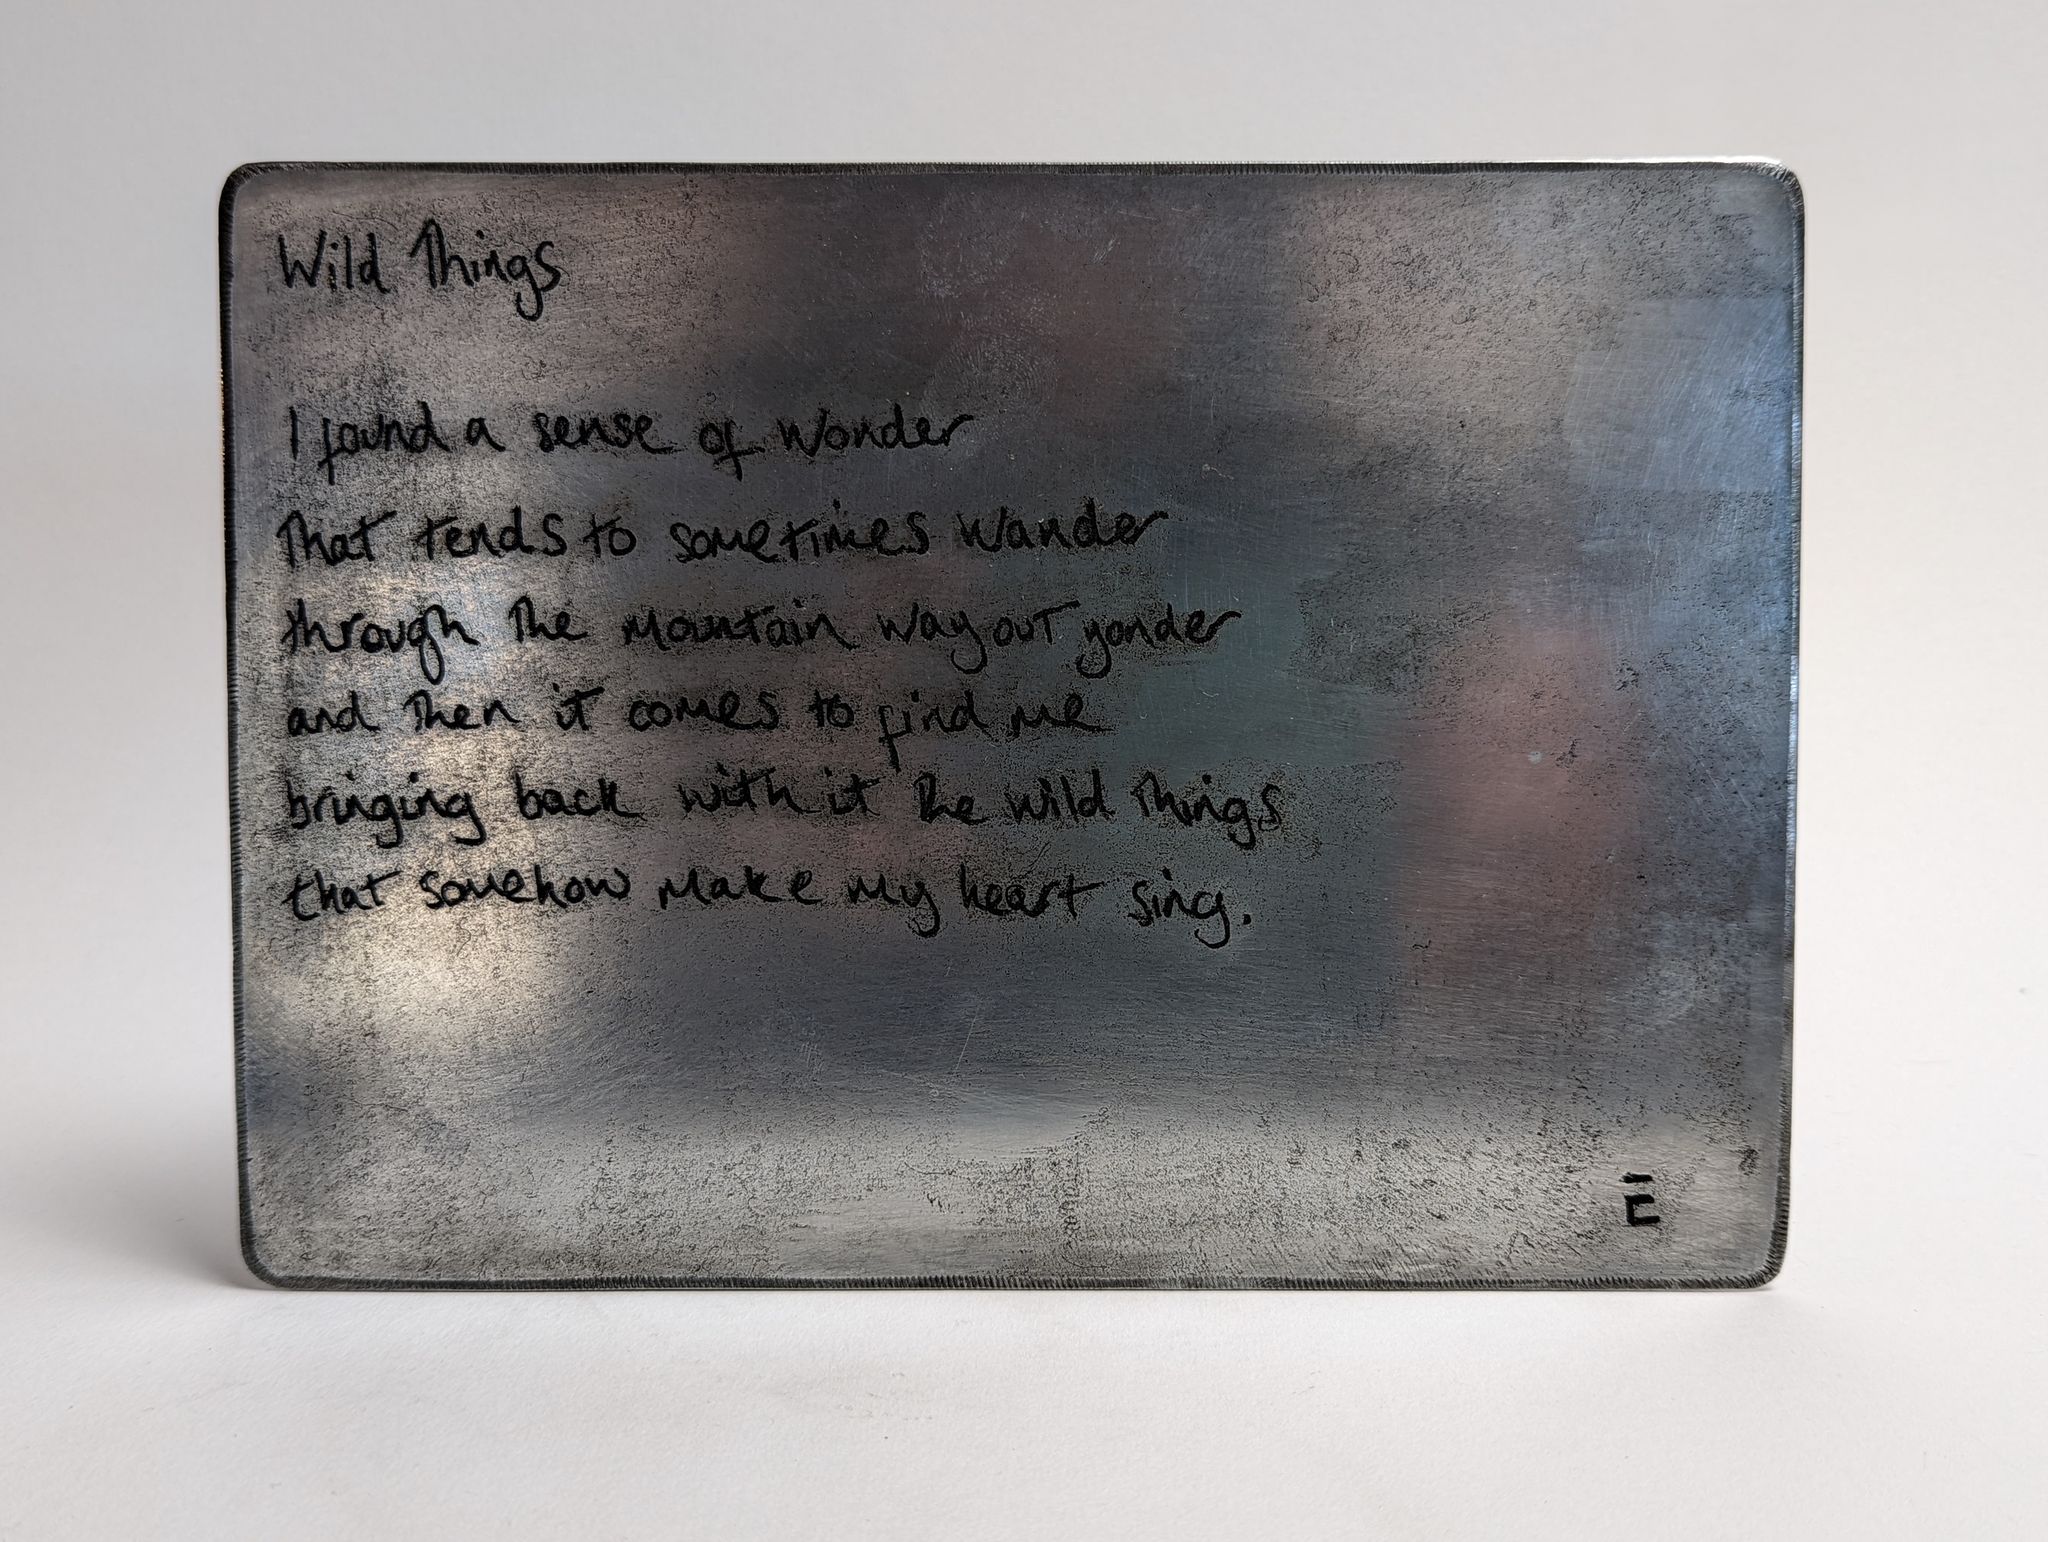 Wild Things
I found a sense of wonder
That tends to sometimes wander
through the mountain way out yonder
and then it comes to find me
bringing back with it the wild things
that somehow make my heart sing.